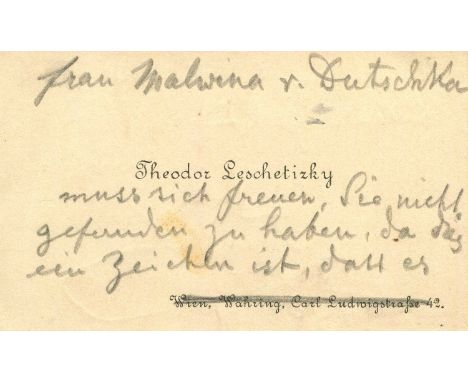 Frau Malwina v. Dutschka
Theodor Leschetizky
muss sich freuen, Sie nicht
gefunden zu haben, da das
ein Zeichen ist, daß es
Wien, Währing, Carl Ludwigstraße 42.